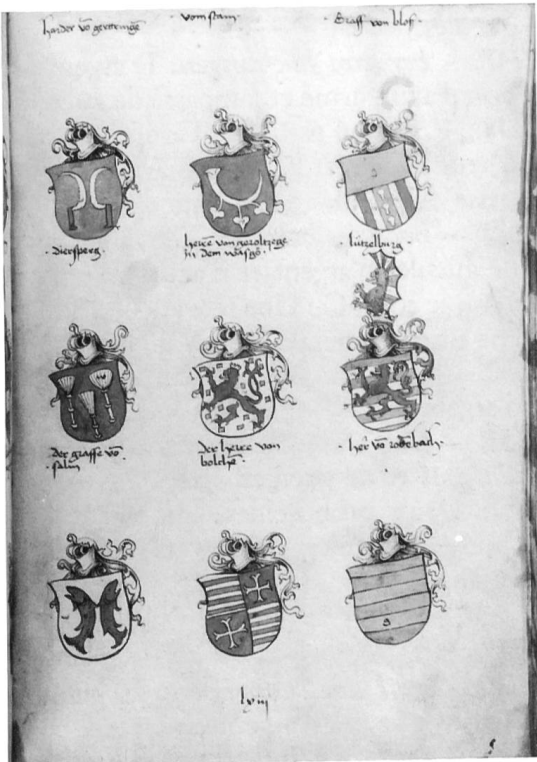 harder vō geroltzingē
vom stain·
·Graff von bloſ·
·dierſperg·
herrē von geroltzege
in dem waſgō·
·lützelburg·
·der graffe vō
·ſalm
der herre von
bolchē·
·her vō rodēbach·
lviij